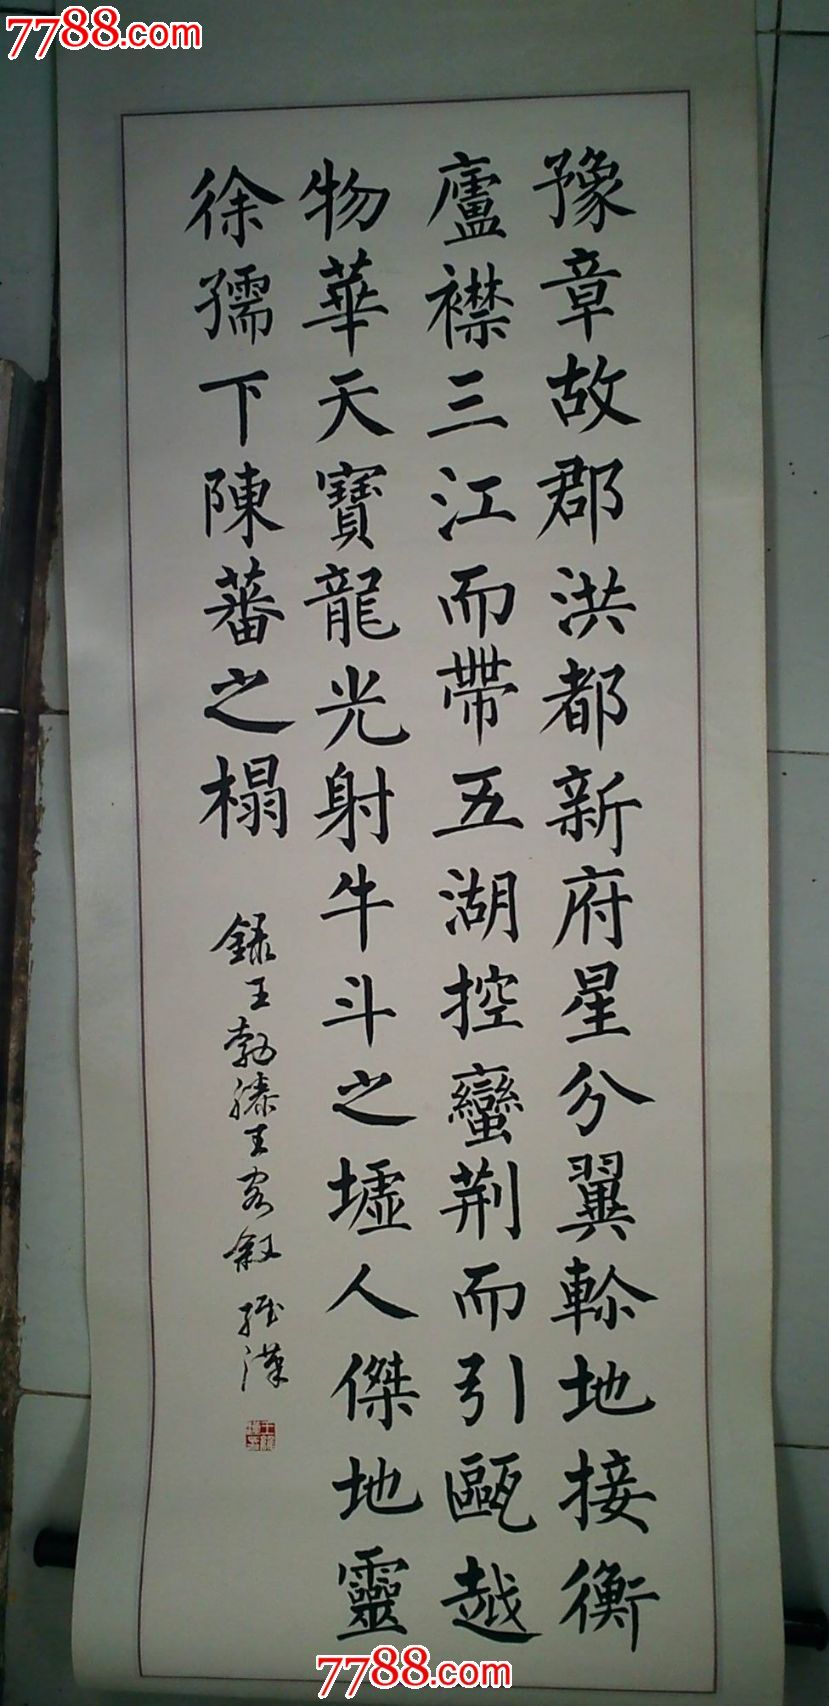 7788.com
豫章故郡洪都新府星分翼軫地接衡
廬襟三江而帶五湖控蠻荆而引甌越
物華天寶龍光射牛斗之墟人傑地靈
徐孺下陳蕃之榻
録王勃滕王阁叙
7788.com